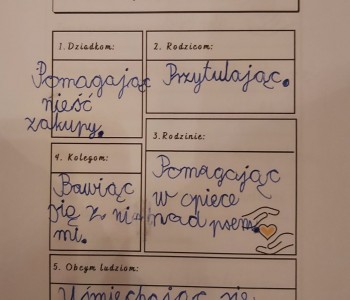 1. Dziadkom:
Pomagając
nieść
zakupy.
2. Rodzicom:
Przytulając.
3. Rodzinie:
Pomagając
w opiece
nad psem.
4. Kolegom:
Bawiąc
się z ni
mi.
5. Obcym ludziom:
Uśmiechając się